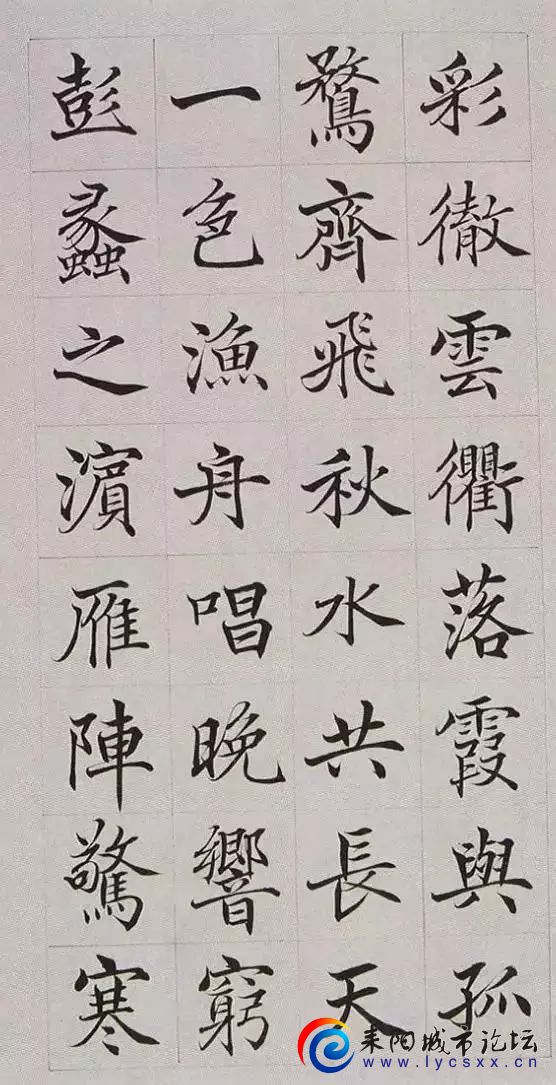 彩徹雲衢落霞與孤
鶩齊飛秋水共長天
一色漁舟唱晚響窮
彭蠡之濱雁陣驚寒
耒阳城市论坛
www.lycsxx.cn